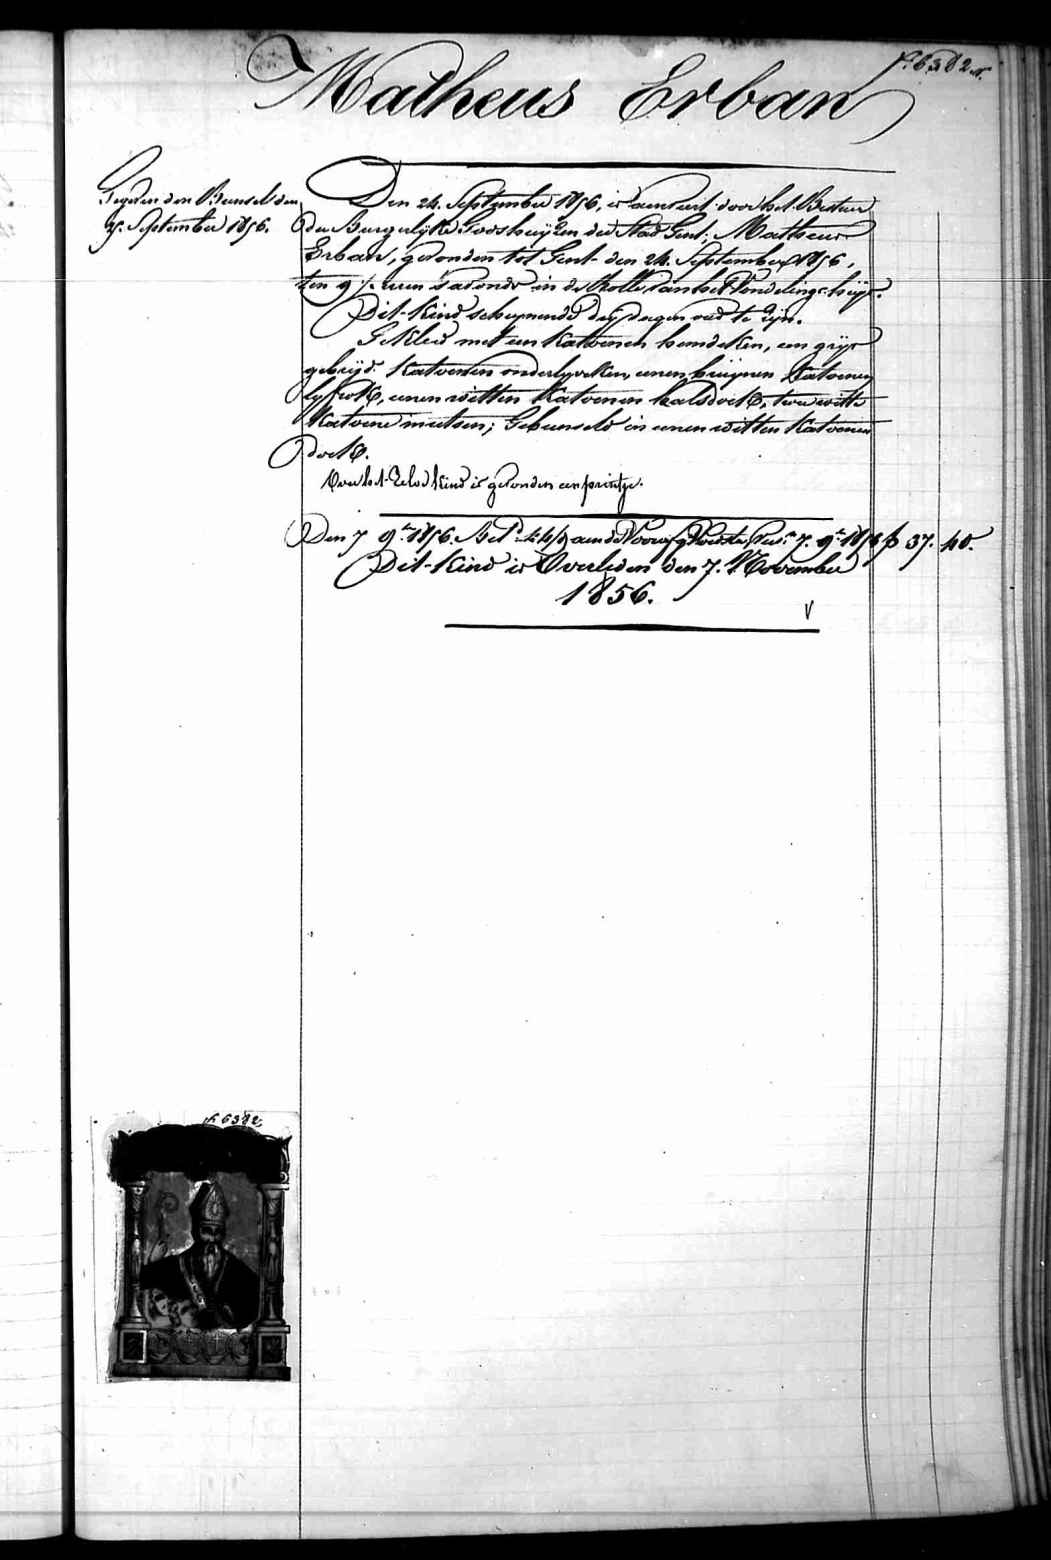 f: 6382 v.
Matheus Erban
Gegeven den Bundel den
25. September 1856.
Den 24. September 1856, is aenveerd door het Bestuer
der Burgerlijke Godshuijzen der Stad Gent; Matheus
Erban, gevonden tot Gent den 24. September 1856,
ten 9 1/2 uren 's avonds in de Rolle van het Vondelings-huijs.
Dit-Kind scheynende dry dagen oud te zijn.
Gekleed met een Katoenen hemdeken, een grijs
Katoenen onderlyveken, eenen bruijnen Katoenen
lyfrok, eenen witten Katoenen halsdoek, twee witte
Katoene mutsen; Gebunseld in eenen witten Katoenen
doek.
Over het-Zelve kind is gevonden een printje.
Den 7 9.re 1856. aen de 7. 9.re 1856 f 37. 40.
Dit-Kind is Overleden den 7. November
1856.
f. 6382